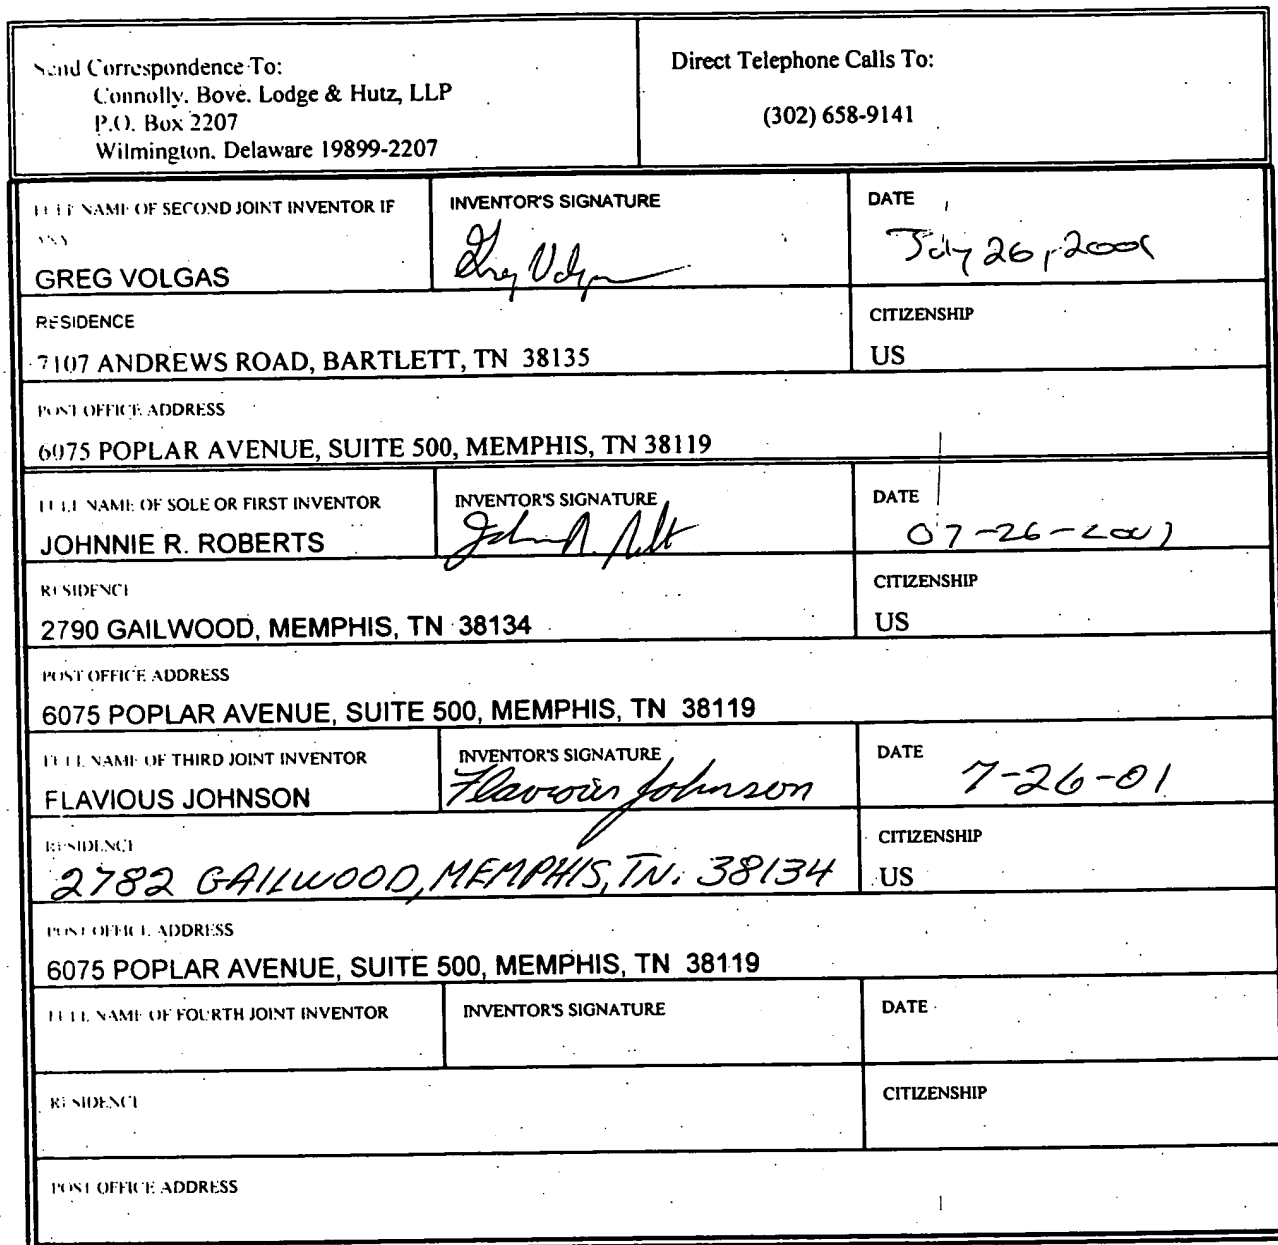 Send Correspondence To:
Connolly, Bove, Lodge & Hutz, LLP
P.O. Box 2207
Wilmington, Delaware 19899-2207
Direct Telephone Calls To:
(302) 658-9141
FULL NAME OF SECOND JOINT INVENTOR IF
ANY
GREG VOLGAS
INVENTOR'S SIGNATURE
Greg Volgas
DATE
July 26, 2001
RESIDENCE
7107 ANDREWS ROAD, BARTLETT, TN 38135
CITIZENSHIP
US
POST OFFICE ADDRESS
6075 POPLAR AVENUE, SUITE 500, MEMPHIS, TN 38119
FULL NAME OF SOLE OR FIRST INVENTOR
JOHNNIE R. ROBERTS
INVENTOR'S SIGNATURE
DATE
07-26-2001
RESIDENCE
2790 GAILWOOD, MEMPHIS, TN 38134
CITIZENSHIP
US
POST OFFICE ADDRESS
6075 POPLAR AVENUE, SUITE 500, MEMPHIS, TN 38119
FULL NAME OF THIRD JOINT INVENTOR
FLAVIOUS JOHNSON
INVENTOR'S SIGNATURE
Flavious Johnson
DATE
7-26-01
RESIDENCE
2782 GAILWOOD, MEMPHIS, TN. 38134
CITIZENSHIP
US
POST OFFICE ADDRESS
6075 POPLAR AVENUE, SUITE 500, MEMPHIS, TN 38119
FULL NAME OF FOURTH JOINT INVENTOR
INVENTOR'S SIGNATURE
DATE
RESIDENCE
CITIZENSHIP
POST OFFICE ADDRESS